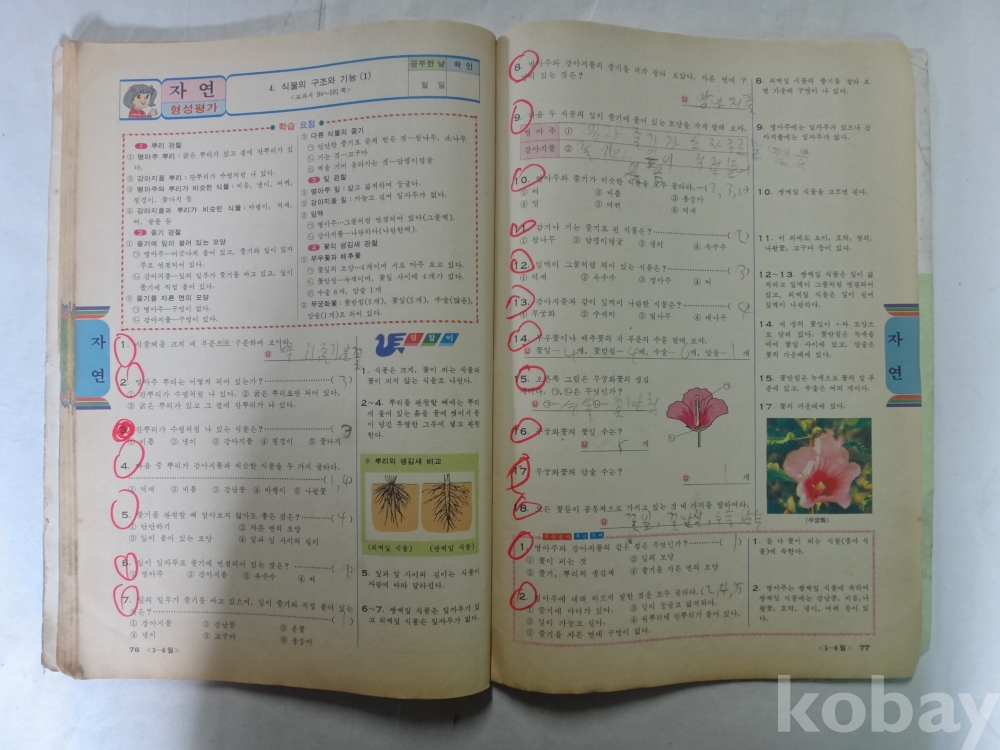 자연
형성평가
4. 식물의 구조와 기능 (1)
<교과서 94~101쪽>
공부한 날
확인
월 일
학습 요점
1 뿌리 관찰
① 명아주 뿌리: 굵은 뿌리가 있고 곁에 잔뿌리가 있다.
② 강아지풀 뿌리: 잔뿌리가 수염처럼 나 있다.
③ 명아주와 뿌리가 비슷한 식물: 비름, 냉이, 여뀌,
질경이, 꽃다지 등
④ 강아지풀과 뿌리가 비슷한 식물: 바랭이, 억새,
벼, 골풀 등
2 줄기 관찰
① 줄기에 잎이 붙어 있는 모양
㉠ 명아주…어긋나게 붙어 있고, 줄기와 잎이 잎자
루로 연결되어 있다.
㉡ 강아지풀…잎의 일부가 줄기를 싸고 있고, 잎이
줄기에 직접 붙어 있다.
② 줄기를 자른 면의 모양
㉠ 명아주…구멍이 없다.
㉡ 강아지풀…구멍이 있다.
③ 다른 식물의 줄기
㉡ 기는 것…고구마
3 잎 관찰
① 명아주 잎: 넓고 넓적하며 둥글다.
② 강아지풀 잎: 가늘고 길며 잎자루가 없다.
③ 잎맥
㉠ 명아주…그물처럼 연결되어 있다(그물맥).
㉡ 강아지풀…나란하다(나란한맥).
4 꽃의 생김새 관찰
① 무우꽃과 배추꽃
㉠ 꽃잎의 모양…4개이며 서로 마주 보고 있다.
㉡ 꽃받침…녹색이며, 꽃잎 사이에 4개가 있다.
㉢ 수술 6개, 암술 1개
② 무궁화꽃: 꽃받침(5개), 꽃잎(5개), 수술(많음),
암술(1개)로 되어 있다.
길잡이
2. 명아주 뿌리는 어떻게 되어 있는가?( 3 )
① 잔뿌리가 수염처럼 나 있다. ② 굵은 뿌리로만 되어 있다.
③ 굵은 뿌리가 있고 그 곁에 잔뿌리가 나 있다.
3. 잔뿌리가 수염처럼 나 있는 식물은?( 3
① 비름 ② 냉이 ③ 강아지풀 ④ 질경이 ⑤ 꽃다지
4. 다음 중 뿌리가 강아지풀과 비슷한 식물을 두 가지 골라라.
( 1, 4 )
① 억새 ② 비름 ③ 강낭콩 ④ 바랭이 ⑤ 나팔꽃
5. 줄기를 관찰할 때 알아보지 않아도 좋은 것은?( 4 )
① 단단하기 ② 자른 면의 모양
③ 잎이 붙어 있는 모양 ④ 잎과 잎 사이의 길이
6. 잎이 잎자루로 줄기에 연결되어 있는 것은?( 1 )
① 명아주 ② 강아지풀 ③ 옥수수 ④ 벼
7. 잎의 일부가 줄기를 싸고 있으며, 잎이 줄기와 직접 붙어 있는
것은?
① 강아지풀 ② 강낭콩 ③ 붓꽃
④ 냉이 ⑤ 고구마 ⑥ 봉숭아
1. 식물은 크게, 꽃이 피는 식물과
꽃이 피지 않는 식물로 나뉜다.
2~4. 뿌리를 관찰할 때에는 뿌리
에 붙어 있는 흙을 물에 씻어서 물
이 담긴 투명한 그릇에 넣고 관찰
한다.
뿌리의 생김새 비교
(외떡잎 식물) (쌍떡잎 식물)
5. 잎과 잎 사이의 길이는 식물의
자람에 따라 달라진다.
6~7. 쌍떡잎 식물은 잎자루가 있
고 외떡잎 식물은 잎자루가 없다.
자연
76 <5-6월>
8. 명아주와 강아지풀의 줄기를 각각 잘라 보았다. 자른 면에 구
멍이 있는 것은?
답 강아지풀
9. 다음 두 식물의 잎이 줄기에 붙어 있는 모양을 각각 말해 보자.
명아주 ①
강아지풀 ②
10. 명아주와 줄기가 비슷한 식물을 모두 골라라.
① 벼 ② 비름 ③ 봉숭아
④ 밀 ⑤ 여뀌 ⑥ 억새
11. 감거나 기는 줄기로 된 식물은?( 2 )
① 참나무 ② 담쟁이덩굴 ③ 냉이 ④ 옥수수
12. 잎맥이 그물처럼 되어 있는 식물은?( 3 )
① 억새 ② 옥수수 ③ 명아주 ④ 벼
13. 강아지풀과 같이 잎맥이 나란한 식물은?( 4
① 무궁화 ② 수세미 ③ 벚나무 ④ 대나무
14. 무우꽃이나 배추꽃의 각 부분의 수를 말해 보자.
답 꽃잎―4개, 꽃받침―4개, 수술―6개, 암술―1개
15. 오른쪽 그림은 무궁화꽃의 생김
새이다. ㉠, ㉡은 무엇인가?
답 ㉠―수술 ㉡―꽃받침
16. 무궁화꽃의 꽃잎 수는?
답 5 개
17. 무궁화꽃의 암술 수는?
답 1 개
18. 모든 꽃들이 공통적으로 가지고 있는 것 네 가지를 말하여라.
답 꽃잎, 꽃받침, 수술, 암술
1. 명아주와 강아지풀의 같은 점은 무엇인가?( 1 )
① 꽃이 피는 것 ② 잎의 모양
③ 줄기, 뿌리의 생김새 ④ 줄기를 자른 면의 모양
2. 명아주에 대해 바르게 말한 것을 모두 골라라.(2, 4, 5
① 줄기에 마디가 있다. ② 잎이 둥글고 넓적하다.
③ 잎이 가늘고 길다. ④ 원뿌리에 잔뿌리가 붙어 있다.
⑤ 줄기를 자른 면에 구멍이 없다.
8. 외떡잎 식물의 줄기를 잘라 보
면 가운데 구멍이 나 있다.
9. 명아주에는 잎자루가 있으나 강
아지풀에는 잎자루가 없다.
10. 쌍떡잎 식물을 고르면 된다.
11. 이 외에도 오이, 호박, 칡과,
나팔꽃, 고구마 등이 있다.
12~13. 쌍떡잎 식물은 잎이 넓
적하고 잎맥이 그물처럼 연결되어
있고, 외떡잎 식물은 잎이 길며
잎맥이 나란하다.
14. 네 장의 꽃잎이 +자 모양으
로 달려 있다. 꽃받침은 녹색을
띠며 꽃잎 사이에 있고, 암술은
꽃의 가운데에 있다.
15. 꽃받침은 녹색으로 꽃의 밑 부
분에 있고, 수술은 여러 개이다.
17. 꽃의 가운데에 있다.
(무궁화)
1. 둘 다 꽃이 피는 식물(종자 식
물)에 속한다.
2. 명아주는 쌍떡잎 식물에 속하며
쌍떡잎 식물에는 강낭콩, 비름, 나
팔꽃, 호박, 냉이, 여뀌 등이 있
다.
자연
<5-6월> 77
kobay